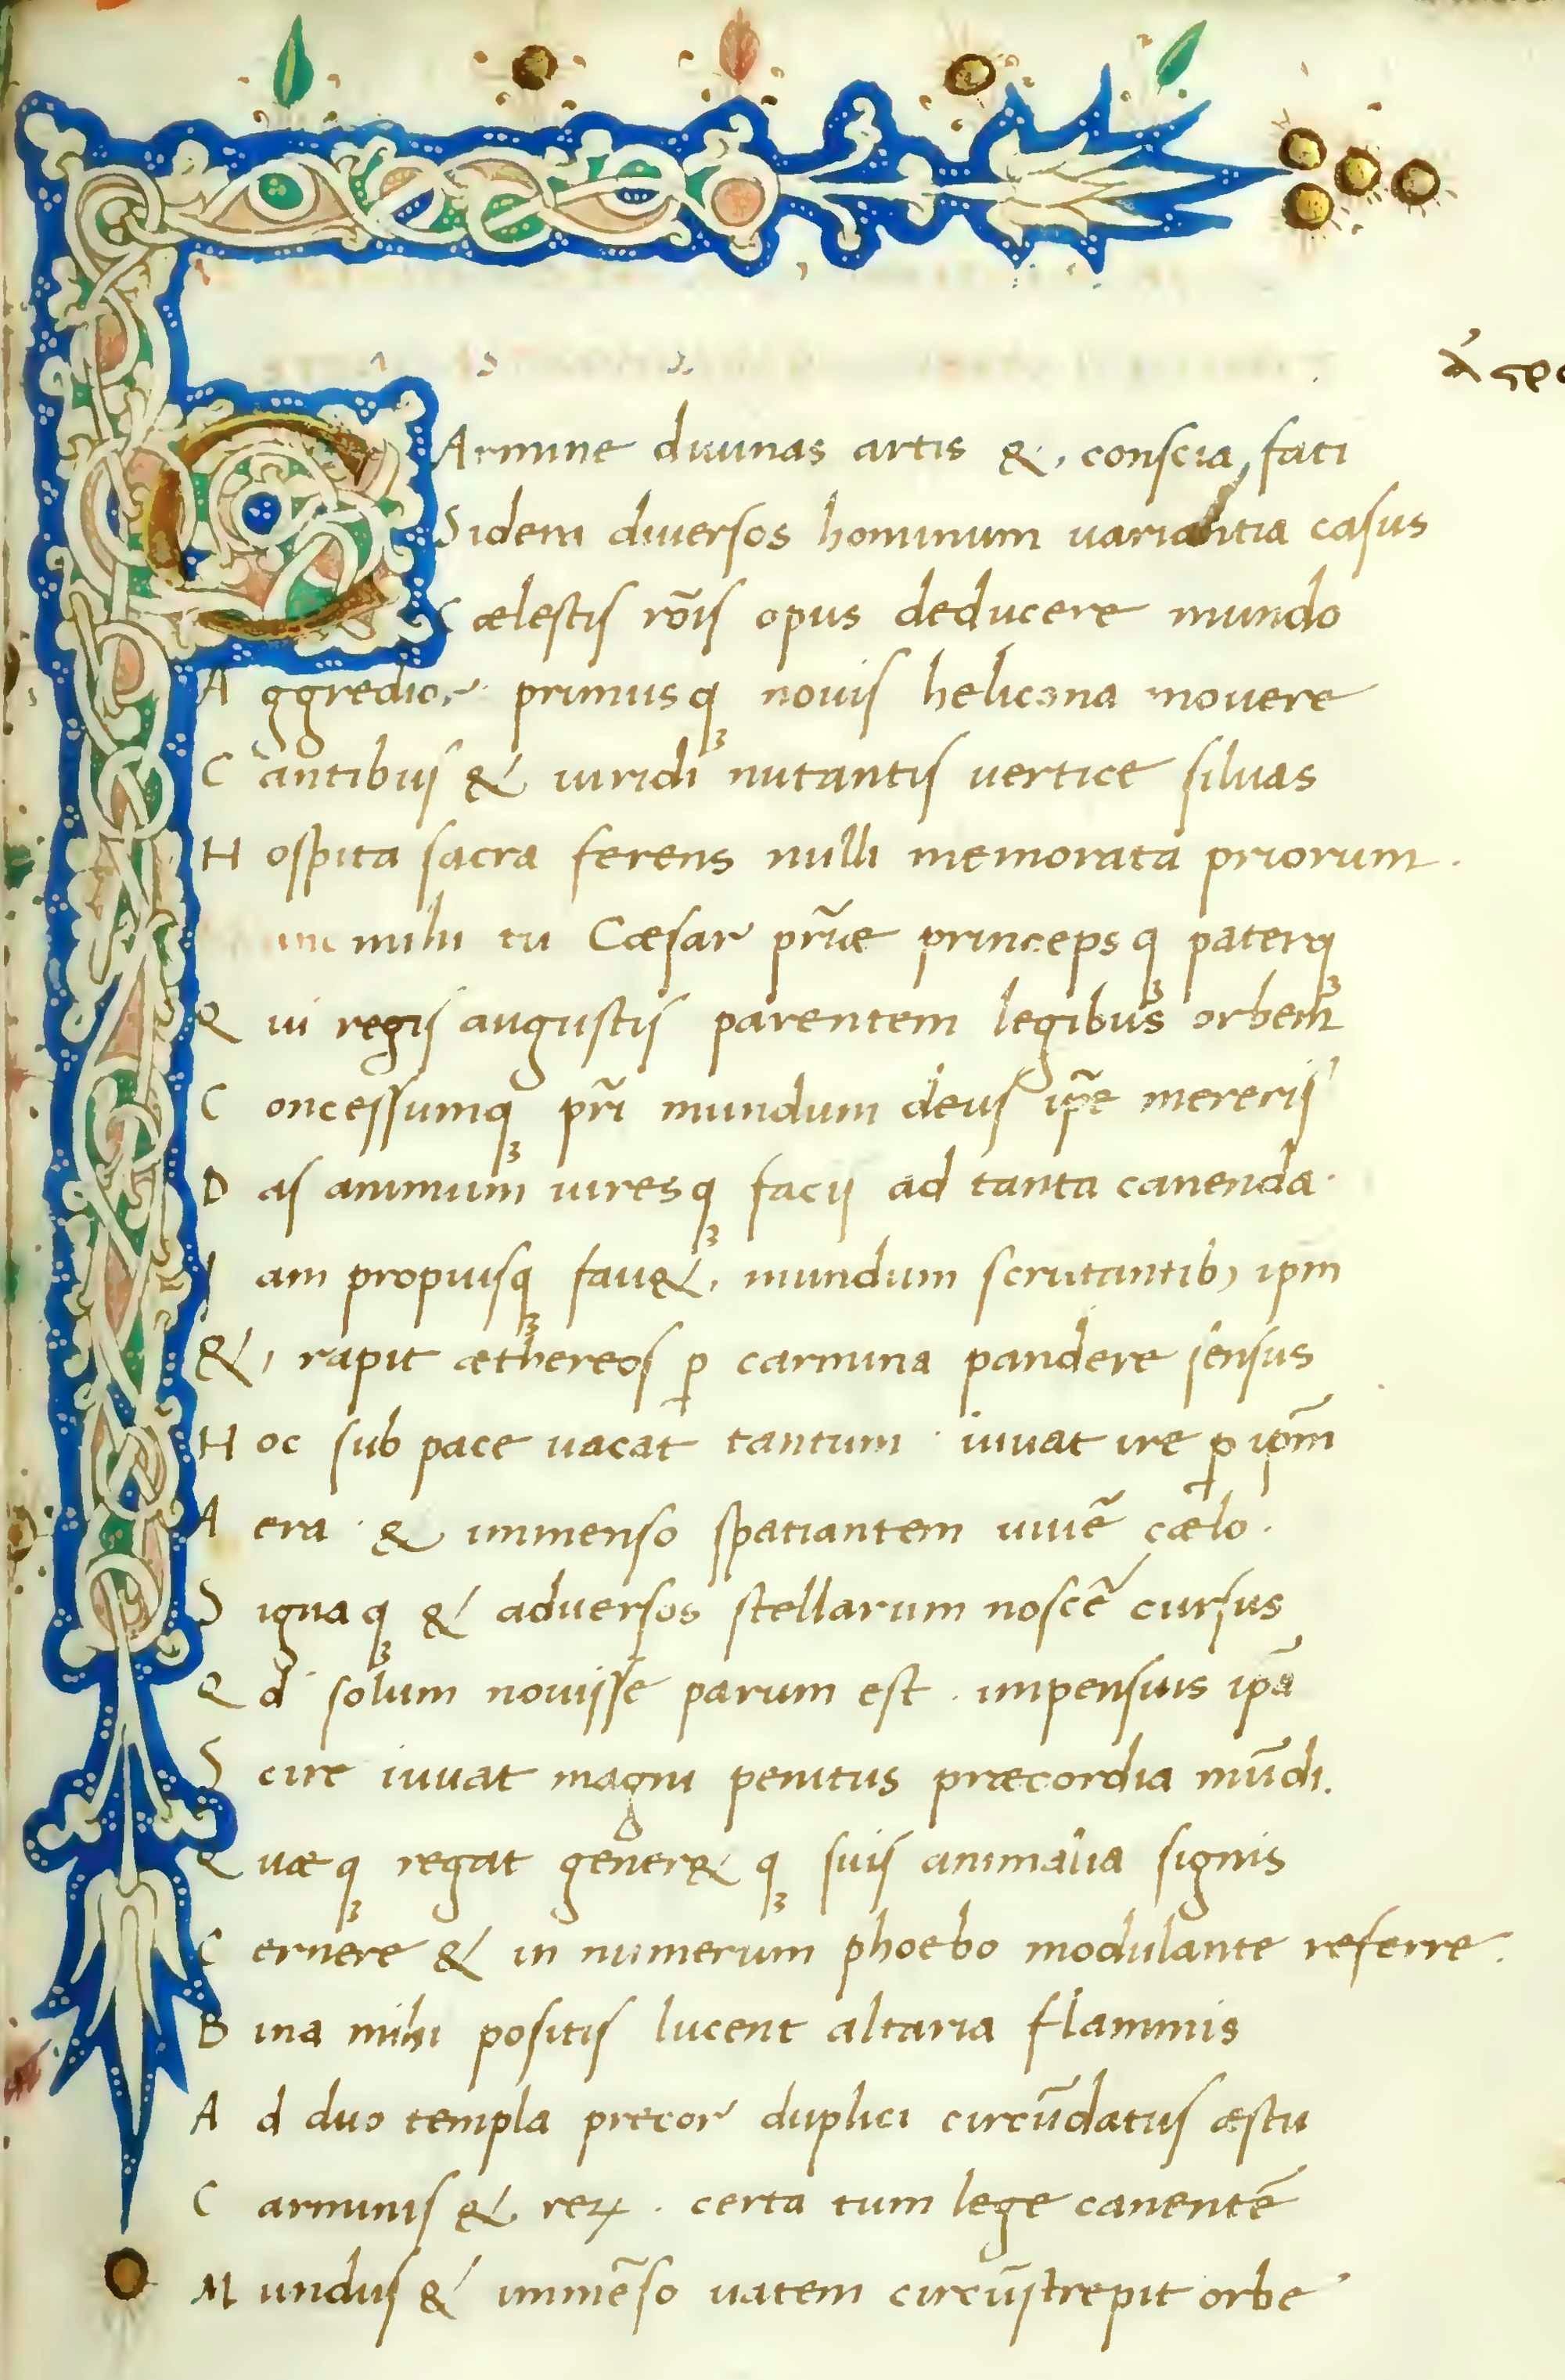 CArmine diuinas artis &, conscia fati
Sidera diuersos hominum uariantia casus
Cælestis rōis opus deducere mundo
Aggredior primusqꝫ nouis helicona mouere
Cantibus & uiridi nutantis uertice siluas
Hospita sacra ferens nulli memorata priorum.
mihi tu Cæsar pr̃iæ princepsqꝫ paterqꝫ
Qui regis augustis parentem legibus orbem
Concessumqꝫ pr̃i mundum deus ip̃e mereris
Das animum uiresqꝫ facis ad tanta canenda.
Iam propiusqꝫ fau&, mundum scrutantibꝫ ipm
&, rapit æthereos ꝑ carmina pandere sensus
Hoc sub pace uacat tantum · iuuat ire ꝑ ip̄m
Aera · & immenso spatiantem uiuẽ cælo.
Signaqꝫ & aduersos stellarum noscẽ cursus
Qd solum nouisse parum est . impensius ip̃a
Scire iuuat magni penitus præcordia mūdi.
Quæqꝫ regat gener&qꝫ suis animalia signis
Cernere & in numerum phoebo modulante referre.
Bina mihi positis lucent altaria flammis
Ad duo templa precor duplici circūdatus æstu
Carminis & reꝝ . certa tum lege canentē
Mundus & immēso uatem circūstrepit orbe